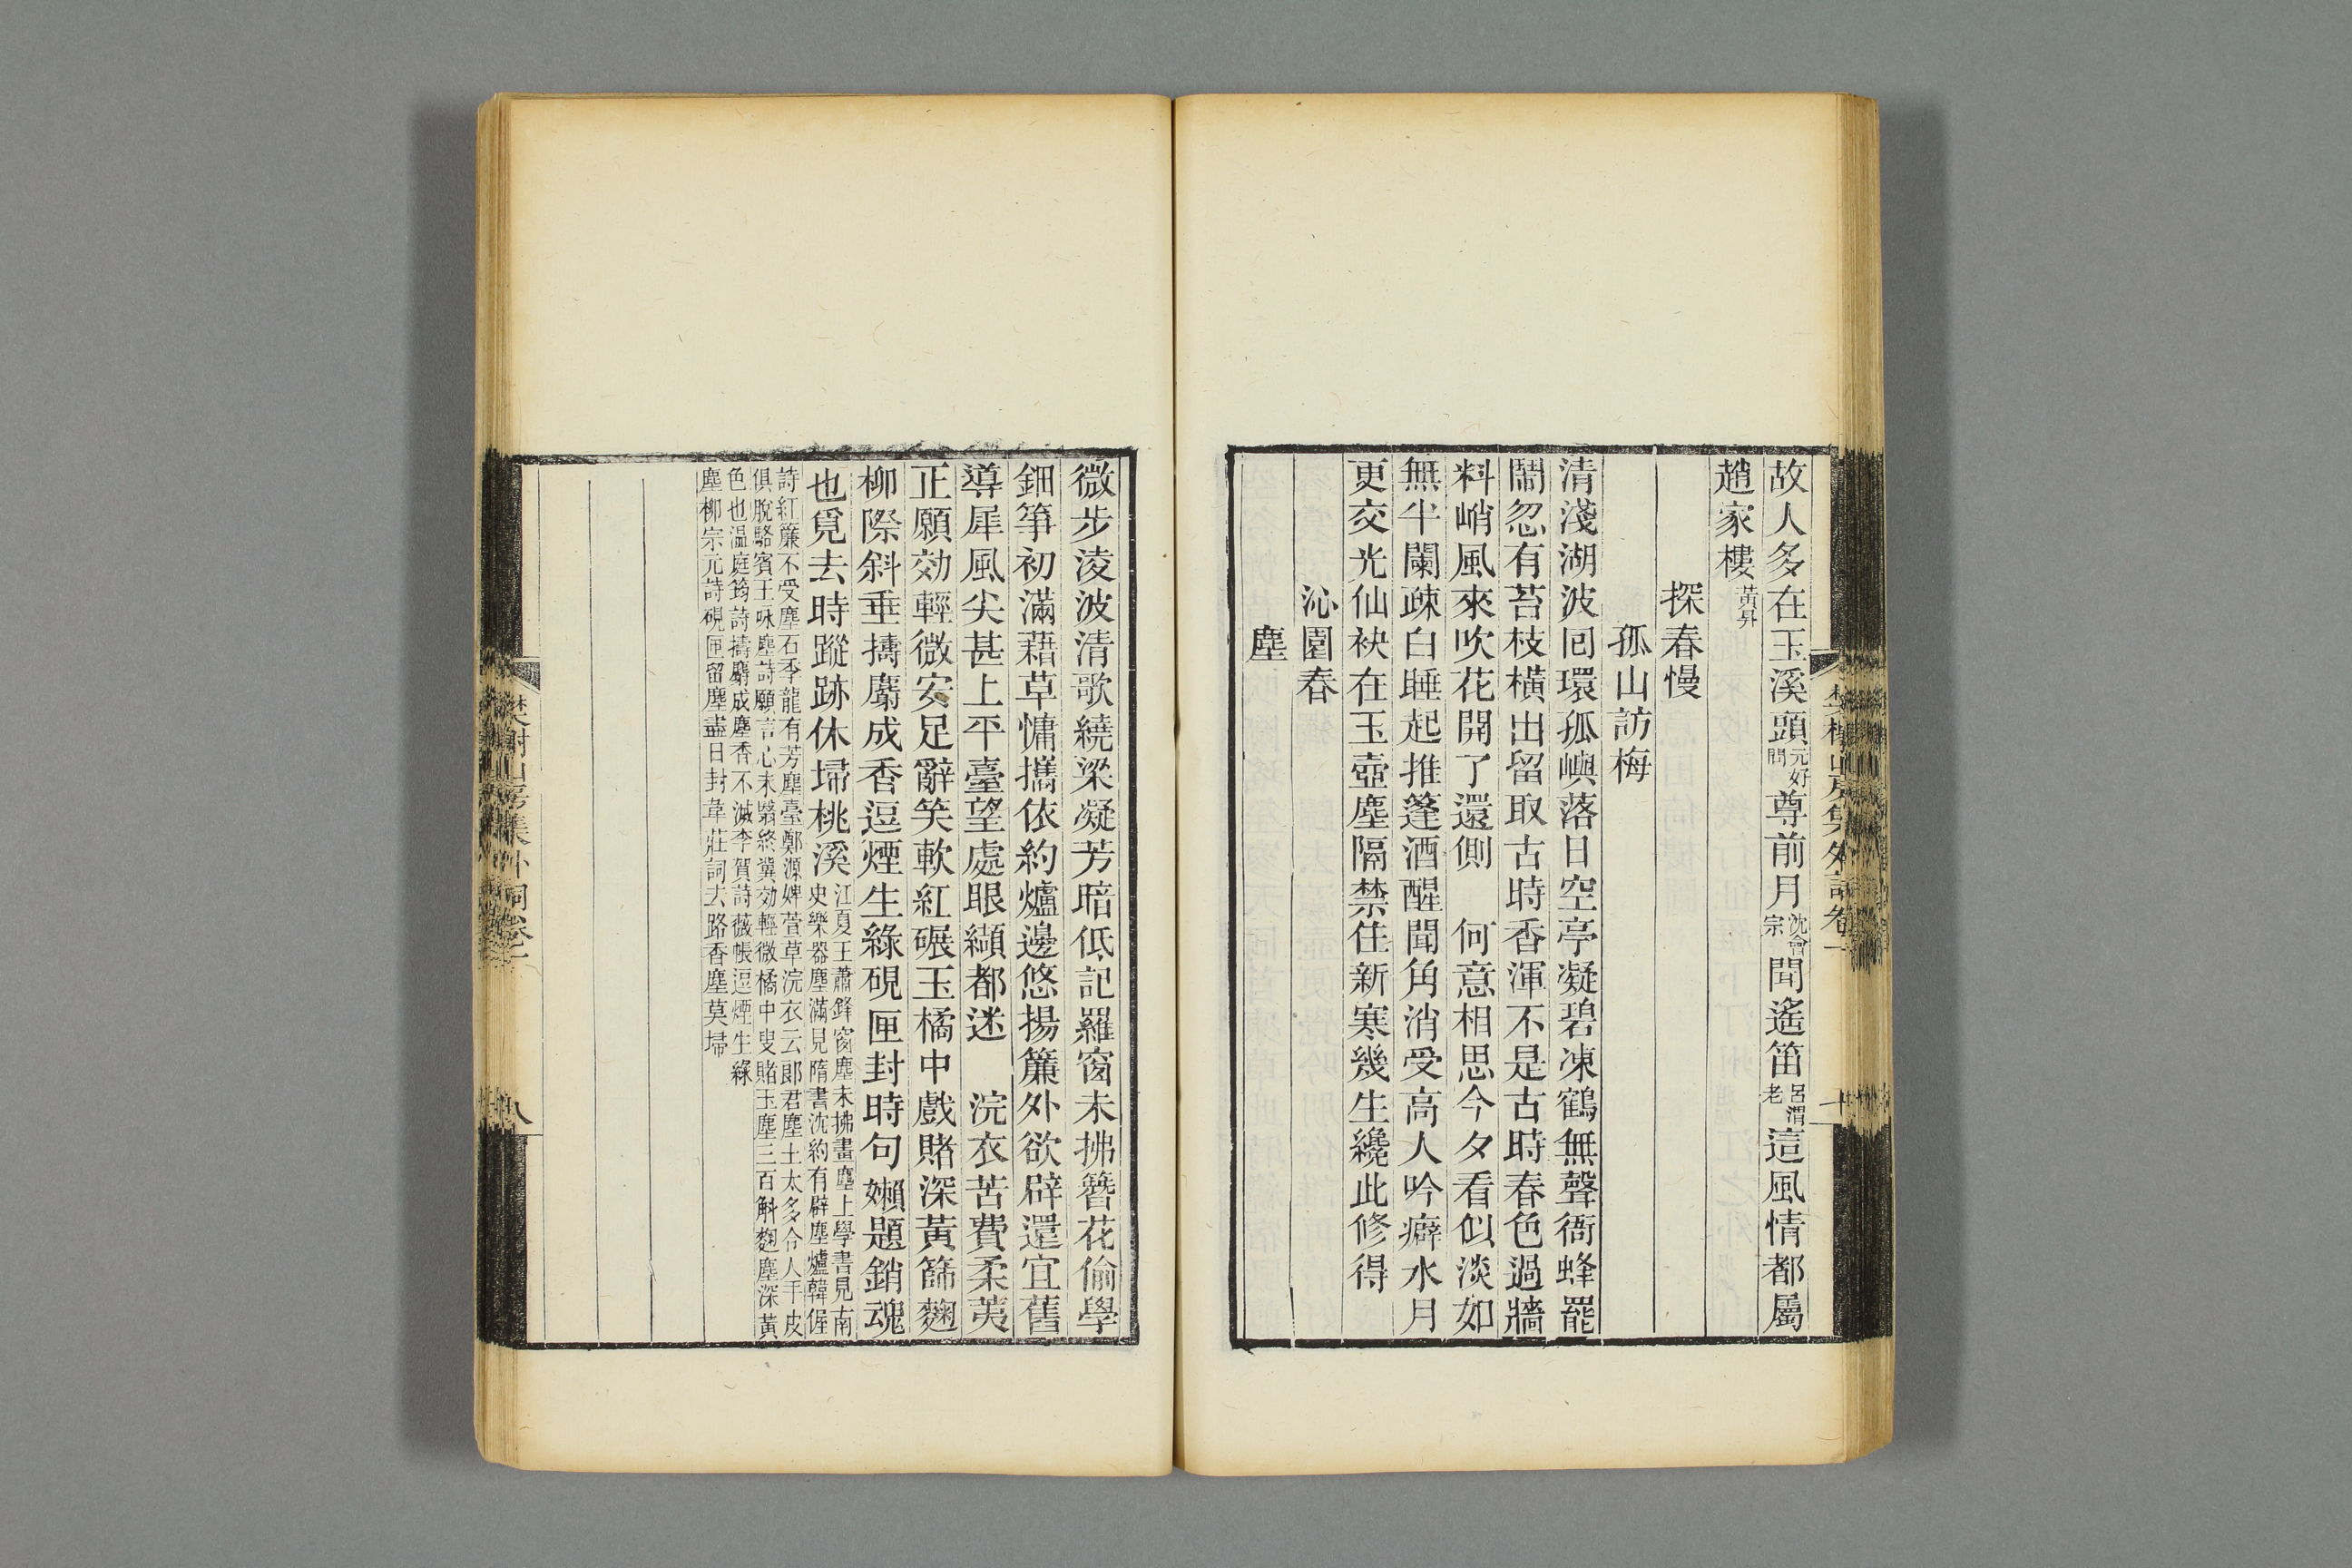 故人多在玉溪頭元好問尊前月沈會宗聞遙笛呂渭老這風情都屬
趙家樓黃昇
探春慢
孤山訪梅
清淺湖波囘環孤嶼落日空亭凝碧凍鶴無聲衙蜂罷
鬧忽有苔枝橫出留取古時香渾不是古時春色過牆
料峭風來吹花開了還側　何意相思今夕看似淡如
無半闌疎白睡起推篷酒醒聞角消受高人吟癖水月
更交光仙袂在玉壺塵隔禁住新寒幾生纔此修得
沁園春
塵
微步淩波清歌繞梁凝芳暗低記羅窗未拂簪花偷學
鈿箏初滿藉草慵攜依約爐邊悠揚簾外欲辟還宜舊
導犀風尖甚上平臺望處眼纈都迷　浣衣苦費柔荑
正願効輕微安足辭笑軟紅碾玉橘中戲賭深黃篩麴
柳際斜垂擣麝成香逗煙生綠硯匣封時句嬾題銷魂
也覓去時蹤跡休埽桃溪江夏王蕭鋒窗塵未拂畫塵上學書見南
史樂器塵滿見隋書沈約有辟塵爐韓偓
詩紅簾不受塵石季龍有芳塵臺鄭源婢萱草浣衣云郎君塵土太多令人手皮
俱脫駱賓王咏塵詩願言心未翳終冀効輕微橘中叟賭玉塵三百斛麴塵深黃
色也温庭筠詩擣麝成塵香不滅李賀詩薇帳逗煙生綠
塵柳宗元詩硯匣留塵盡日封韋莊詞去路香塵莫埽
樊榭山房集外詞卷一
八